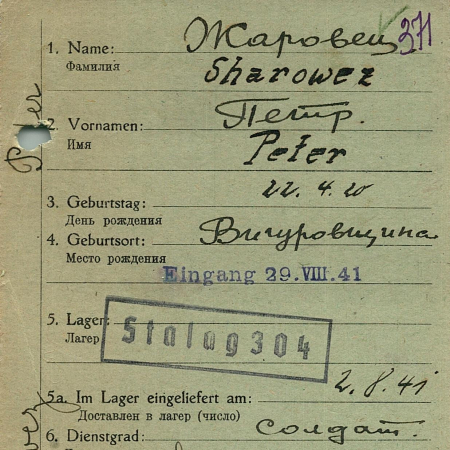 371
1. Name: Жаровец
Фамилия Sharowez
2. Vornamen: Петр.
Имя Peter
3. Geburtstag: 22. 4. 20
День рождения
4. Geburtsort: Вигуровщина
Место рождения
Eingang 29.VIII.41
5. Lager: Stalag 304
Лагер
5a. Im Lager eingeliefert am: 2. 8. 41
Доставлен в лагер (число)
6. Dienstgrad: солдат.